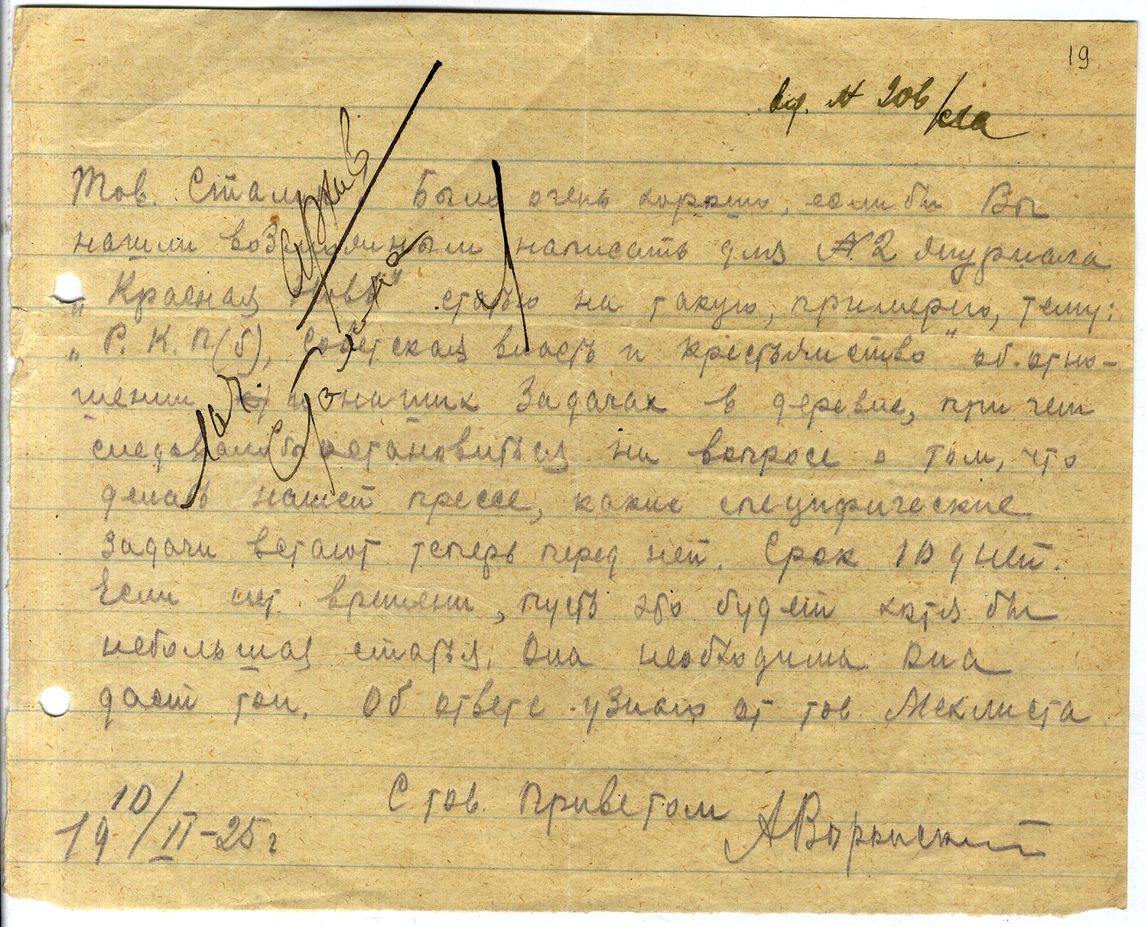 19
вх. № 206/
Тов. Сталин Было очень хорошо, если бы Вы
нашли возможным написать для №2 журнала
„Красная Новь" статью на такую, примерно, тему:
„Р.К.П(б), Советская власть и крестьянство" об отно-
шении и наших задачах в деревне, при чем
следовало бы остановиться на вопросе о том, что
делать нашей прессе, какие специфические
задачи встают теперь перед ней. Срок 10 дней.
Если нет времени, пусть это будет хотя бы
небольшая статья. Она необходима Она
даст тон. Об ответе узнаю от тов. Мехлиса
С тов. Приветом
АВоронский
19 10/II-25 г
архив
Сталина